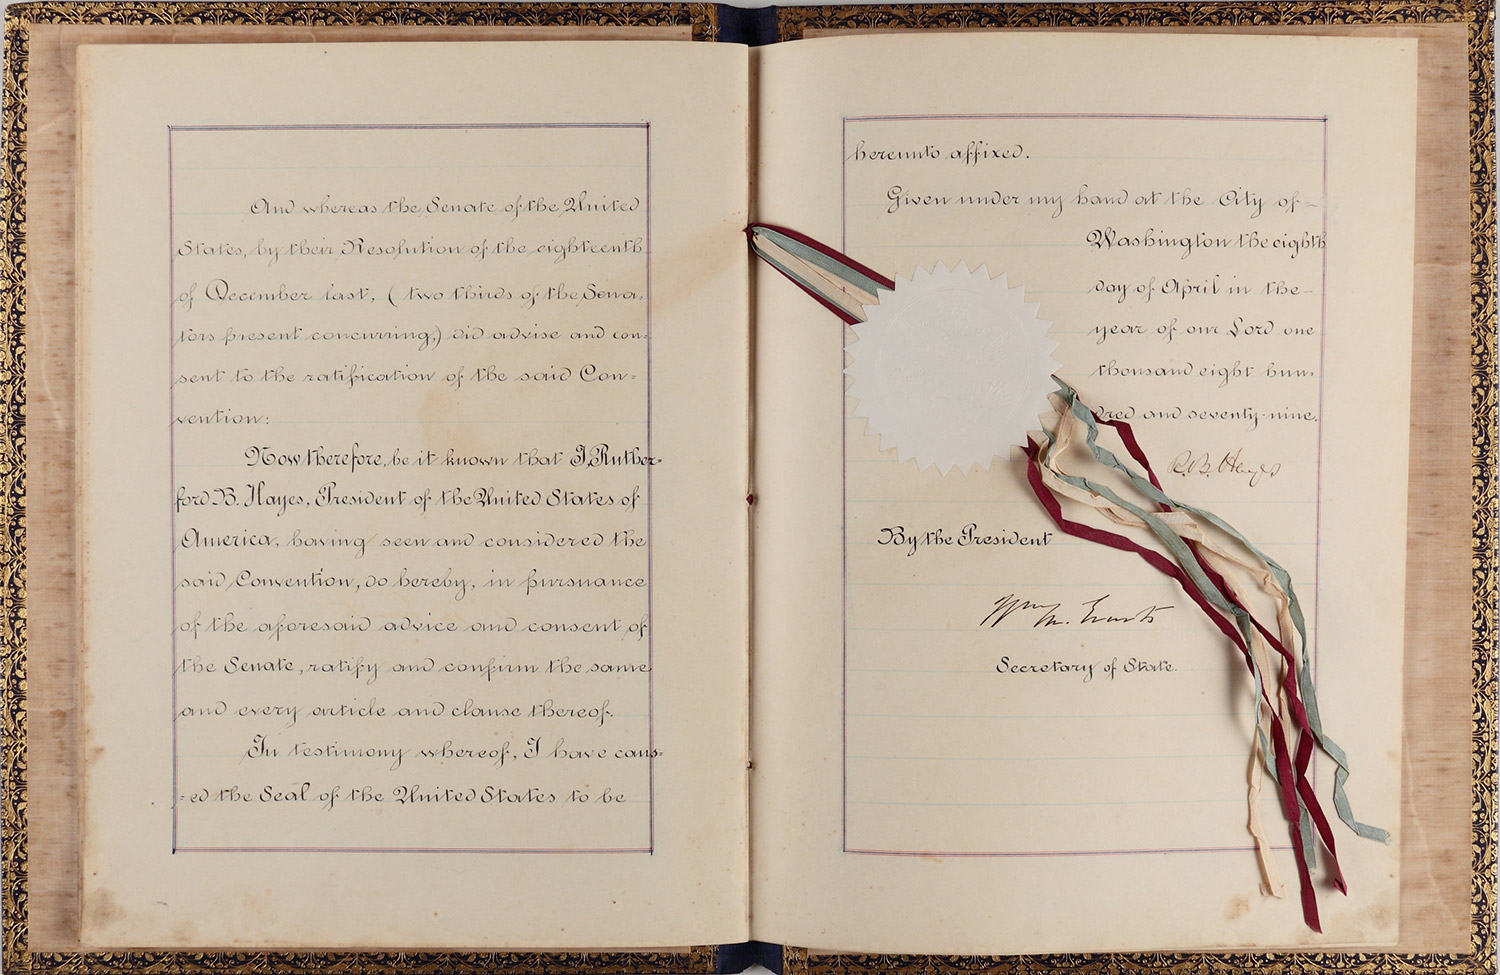 And whereas the Senate of the United
States, by their Resolution of the eighteenth
of December last, (two thirds of the Sena-
tors present concurring,) did advise and con-
sent to the ratification of the said Con-
vention:
Now therefore, be it known that I, Ruther-
ford B. Hayes, President of the United States of
America, having seen and considered the
said Convention, do hereby, in pursuance
of the aforesaid advice and consent of
the Senate, ratify and confirm the same
and every article and clause thereof.
In testimony whereof, I have caus-
=ed the Seal of the United States to be
hereunto affixed.
Given under my hand at the City of-
Washington the eighth
day of April in the-
year of our Lord one
thousand eight hun-
dred and seventy-nine.
R. B. Hayes
By the President
Wm M. Evarts
Secretary of State.